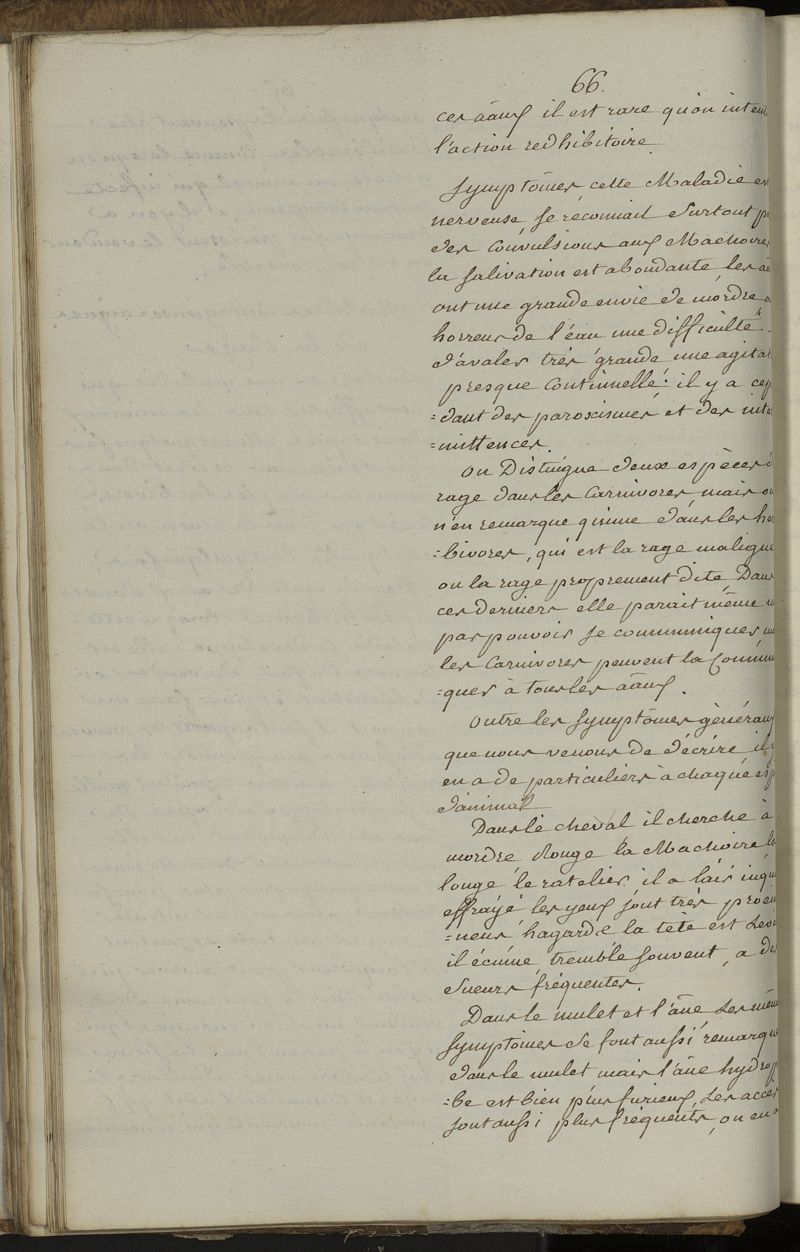 66.
ces āāux il est rare qu'on inten
l'action redhibitoire.
Symptômes cette Maladie es
nerveuse se reconnait surtout p
des Convulsions aux Machoires
la salivation est abondante, les ā
ont une grande envie de mordre
horreur de l'éau une difficulté
d'avaler très grande une agitat
presque Continuelle: il y a cep
=dant des paroxismes et des inte
=mittences.
on Distingue deux espèces d
rage dans les Carnivores mais on
n'en remarque qu'une dans les her
=bivores, qui est la rage maligne
ou la rage proprement dite, Dans
ces derniers elle parait même n
pas pouvoir se communiquer,
les Carnivores peuvent la Commun
=quer à tous les āāux.
outre les symptômes généraux
que nous venons de décrire il y
en a de particuliers à chaque esp
d'animal
Dans le cheval il cherche à
mordre Ronge la Machoire la
longe le ratelier, il a l'air inqu
effrayé les yeux sont très proem
=nens hagards la tête est
il écume, tremble souvent, a des
sueurs fréquentes.
Dans le mulet et l'âne les mêm
symptômes se font aussi remarqu
dans le mulet mais l'âne hydrop
=be est bien plus furieux, les accès
sont aussi plus fréquents, on en